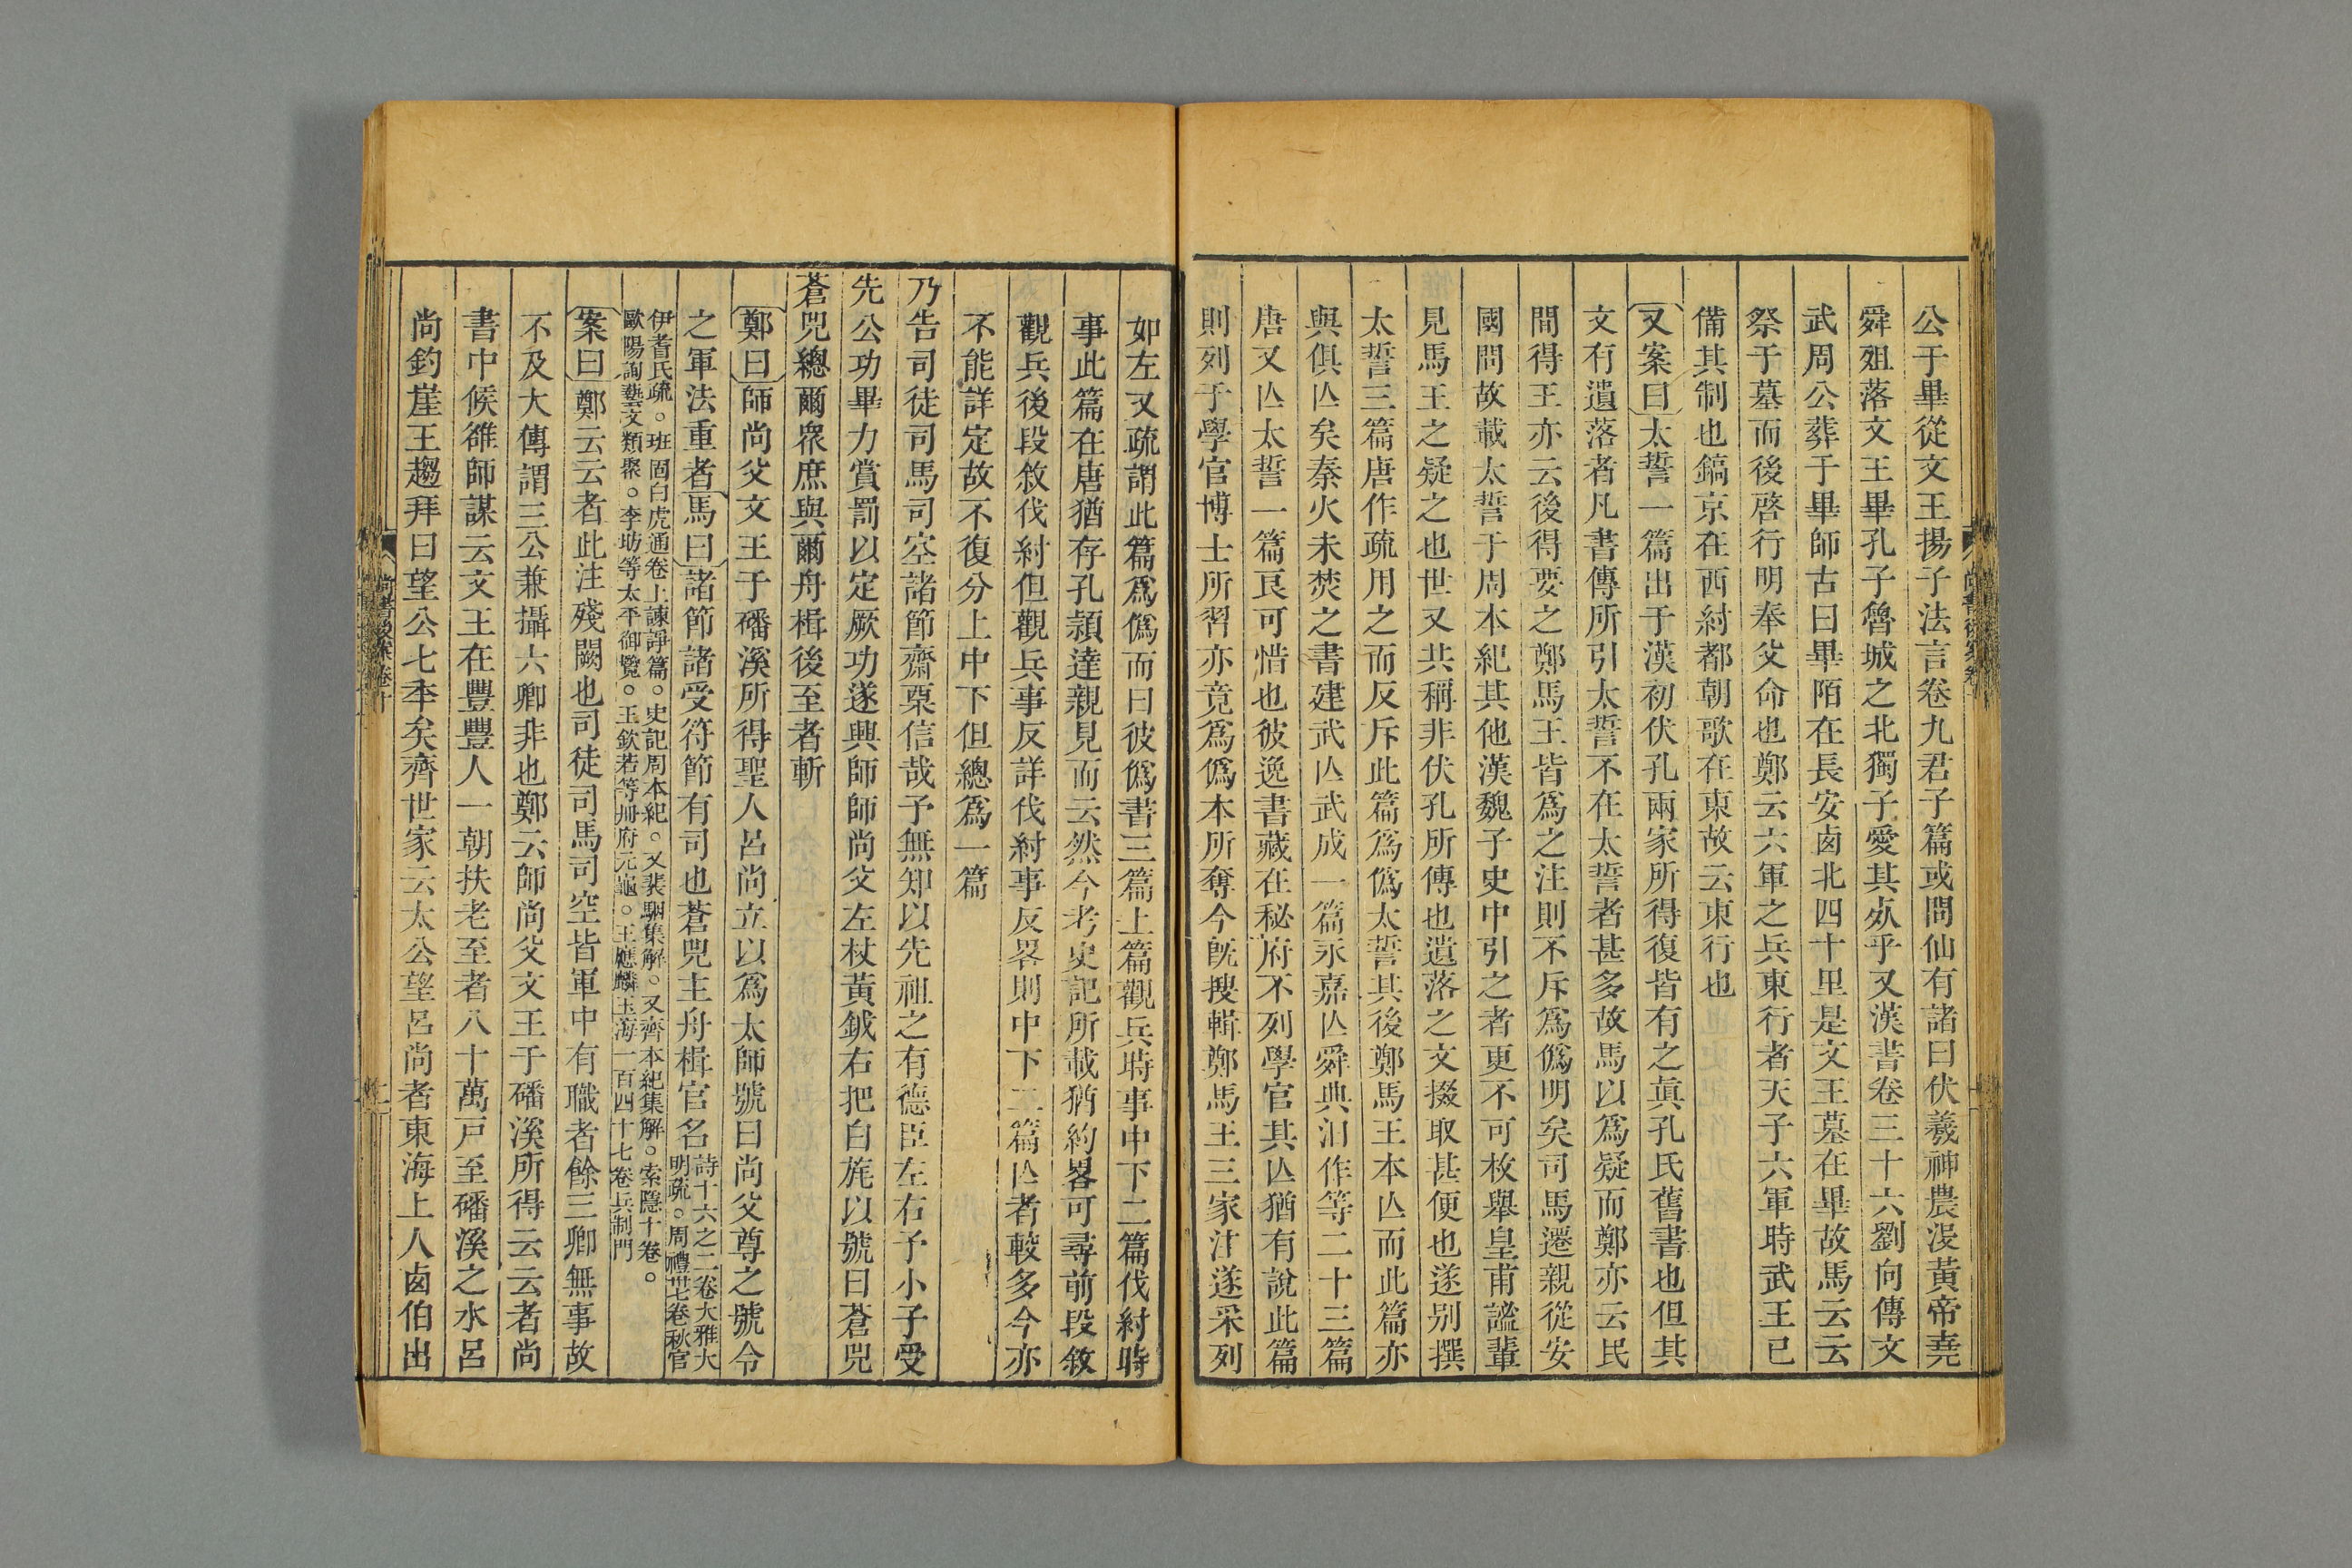 公于畢從文王揚子法言卷九君子篇或問仙有諸曰伏羲神農沒黃帝堯
舜殂落文王畢孔子魯城之北獨子愛其𣦸乎又漢書卷三十六劉向傳文
武周公葬于畢師古曰畢陌在長安𠧧北四十里是文王墓在畢故馬云云
祭于墓而後啓行明奉父命也鄭云六軍之兵東行者天子六軍時武王已
備其制也鎬京在西紂都朝歌在東故云東行也
又案曰太誓一篇出于漢初伏孔兩家所得復皆有之眞孔氏舊書也但其
文有遺落者凡書傳所引太誓不在太誓者甚多故馬以爲疑而鄭亦云民
間得王亦云後得要之鄭馬王皆爲之注則不斥爲僞明矣司馬遷親從安
國問故載太誓于周本紀其他漢魏子史中引之者更不可枚舉皇甫謐輩
見馬王之疑之也世又共稱非伏孔所傳也遺落之文掇取甚便也遂別撰
太誓三篇唐作疏用之而反斥此篇爲僞太誓其後鄭馬王本亾而此篇亦
與俱亾矣秦火未焚之書建武亾武成一篇永嘉亾舜典汩作等二十三篇
唐又亾太誓一篇良可惜也彼逸書藏在秘府不列學官其亾猶有說此篇
則列于學官博士所習亦竟爲僞本所奪今旣搜輯鄭馬王三家注遂采列
如左又疏謂此篇爲僞而曰彼僞書三篇上篇觀兵時事中下二篇伐紂時
事此篇在唐猶存孔穎達親見而云然今考史記所載猶約畧可尋前段敘
觀兵後段敘伐紂但觀兵事反詳伐紂事反畧則中下二篇亾者較多今亦
不能詳定故不復分上中下但總爲一篇
乃告司徒司馬司空諸節齊栗信哉予無知以先祖之有德臣左右予小子受
先公功畢力賞罰以定厥功遂興師師尚父左杖黃鉞右把白旄以號曰蒼兕
蒼兕總爾衆庶與爾舟楫後至者斬
鄭曰師尚父文王于磻溪所得聖人呂尚立以爲太師號曰尚父尊之號令
之軍法重者馬曰諸節諸受符節有司也蒼兕主舟楫官名詩十六之二卷大雅大
明疏○周禮卅七卷秋官
伊耆氏疏○班固白虎通卷上諫諍篇○史記周本紀○又裴駰集解○又齊本紀集解○索隱十卷○
歐陽詢藝文類聚○李昉等太平御覽○王欽若等冊府元龜○王應麟玉海一百四十七卷兵制門
案曰鄭云云者此注殘闕也司徒司馬司空皆軍中有職者餘三卿無事故
不及大傳謂三公兼攝六卿非也鄭云師尚父文王于磻溪所得云云者尚
書中候雒師謀云文王在豐豐人一朝扶老至者八十萬戸至磻溪之水呂
尚釣崖王趨拜曰望公七年矣齊世家云太公望呂尚者東海上人𠧧伯出